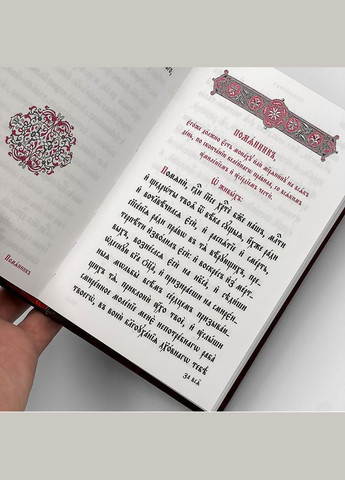 Помѧнникъ
ПОМѦ́ННИКЪ,
Є҆го́же до́лжно є҆́сть мона́хꙋ и҆лѝ мїрѧ́нинꙋ на всѧ́къ
де́нь, по
пра́вила, со всѧ́кимъ
чте́нїемъ
Ѡ҆ живы́хъ.
Помѧнѝ, гд҇и і҆и҃се хр҇тѐ бж҃е на́шъ, млⷭ҇ти
и҆ щедрѡ́ты твоѧ̑ ѿ вѣ́ка сꙋ́щыѧ, и҆́хже ра́ди
и҆ вочл҃вѣ́чилсѧ є҆сѝ, и҆ распѧ́тїе и҆ сме́рть,
спⷭ҇нїѧ ра́ди пра́вѡ въ тѧ̀ вѣ́рꙋющихъ, пре-
терпѣ́ти и҆зво́лилъ є҆сѝ: и҆ воскре́съ и҆з̾ ме́рт-
выхъ, возне́слсѧ є҆сѝ на нб҃са̀, и҆ сѣди́ши
ѡ҆деснꙋ́ю бг҃а ѻ҆ц҃а̀, и҆ призира́еши на смире́н-
ныѧ мольбы̑ всѣ́мъ се́рдцемъ призыва́ю-
щихъ тѧ̀, приклонѝ ᲂу҆́хо твоѐ, и҆ ᲂу҆слы́ши
смире́нное моле́нїе менѐ непотре́бнагѡ раба̀
твоегѡ̀, въ воню̀ бл҃гоꙋха́нїѧ дꙋхо́внагѡ тебѣ̀
За всѧ̑